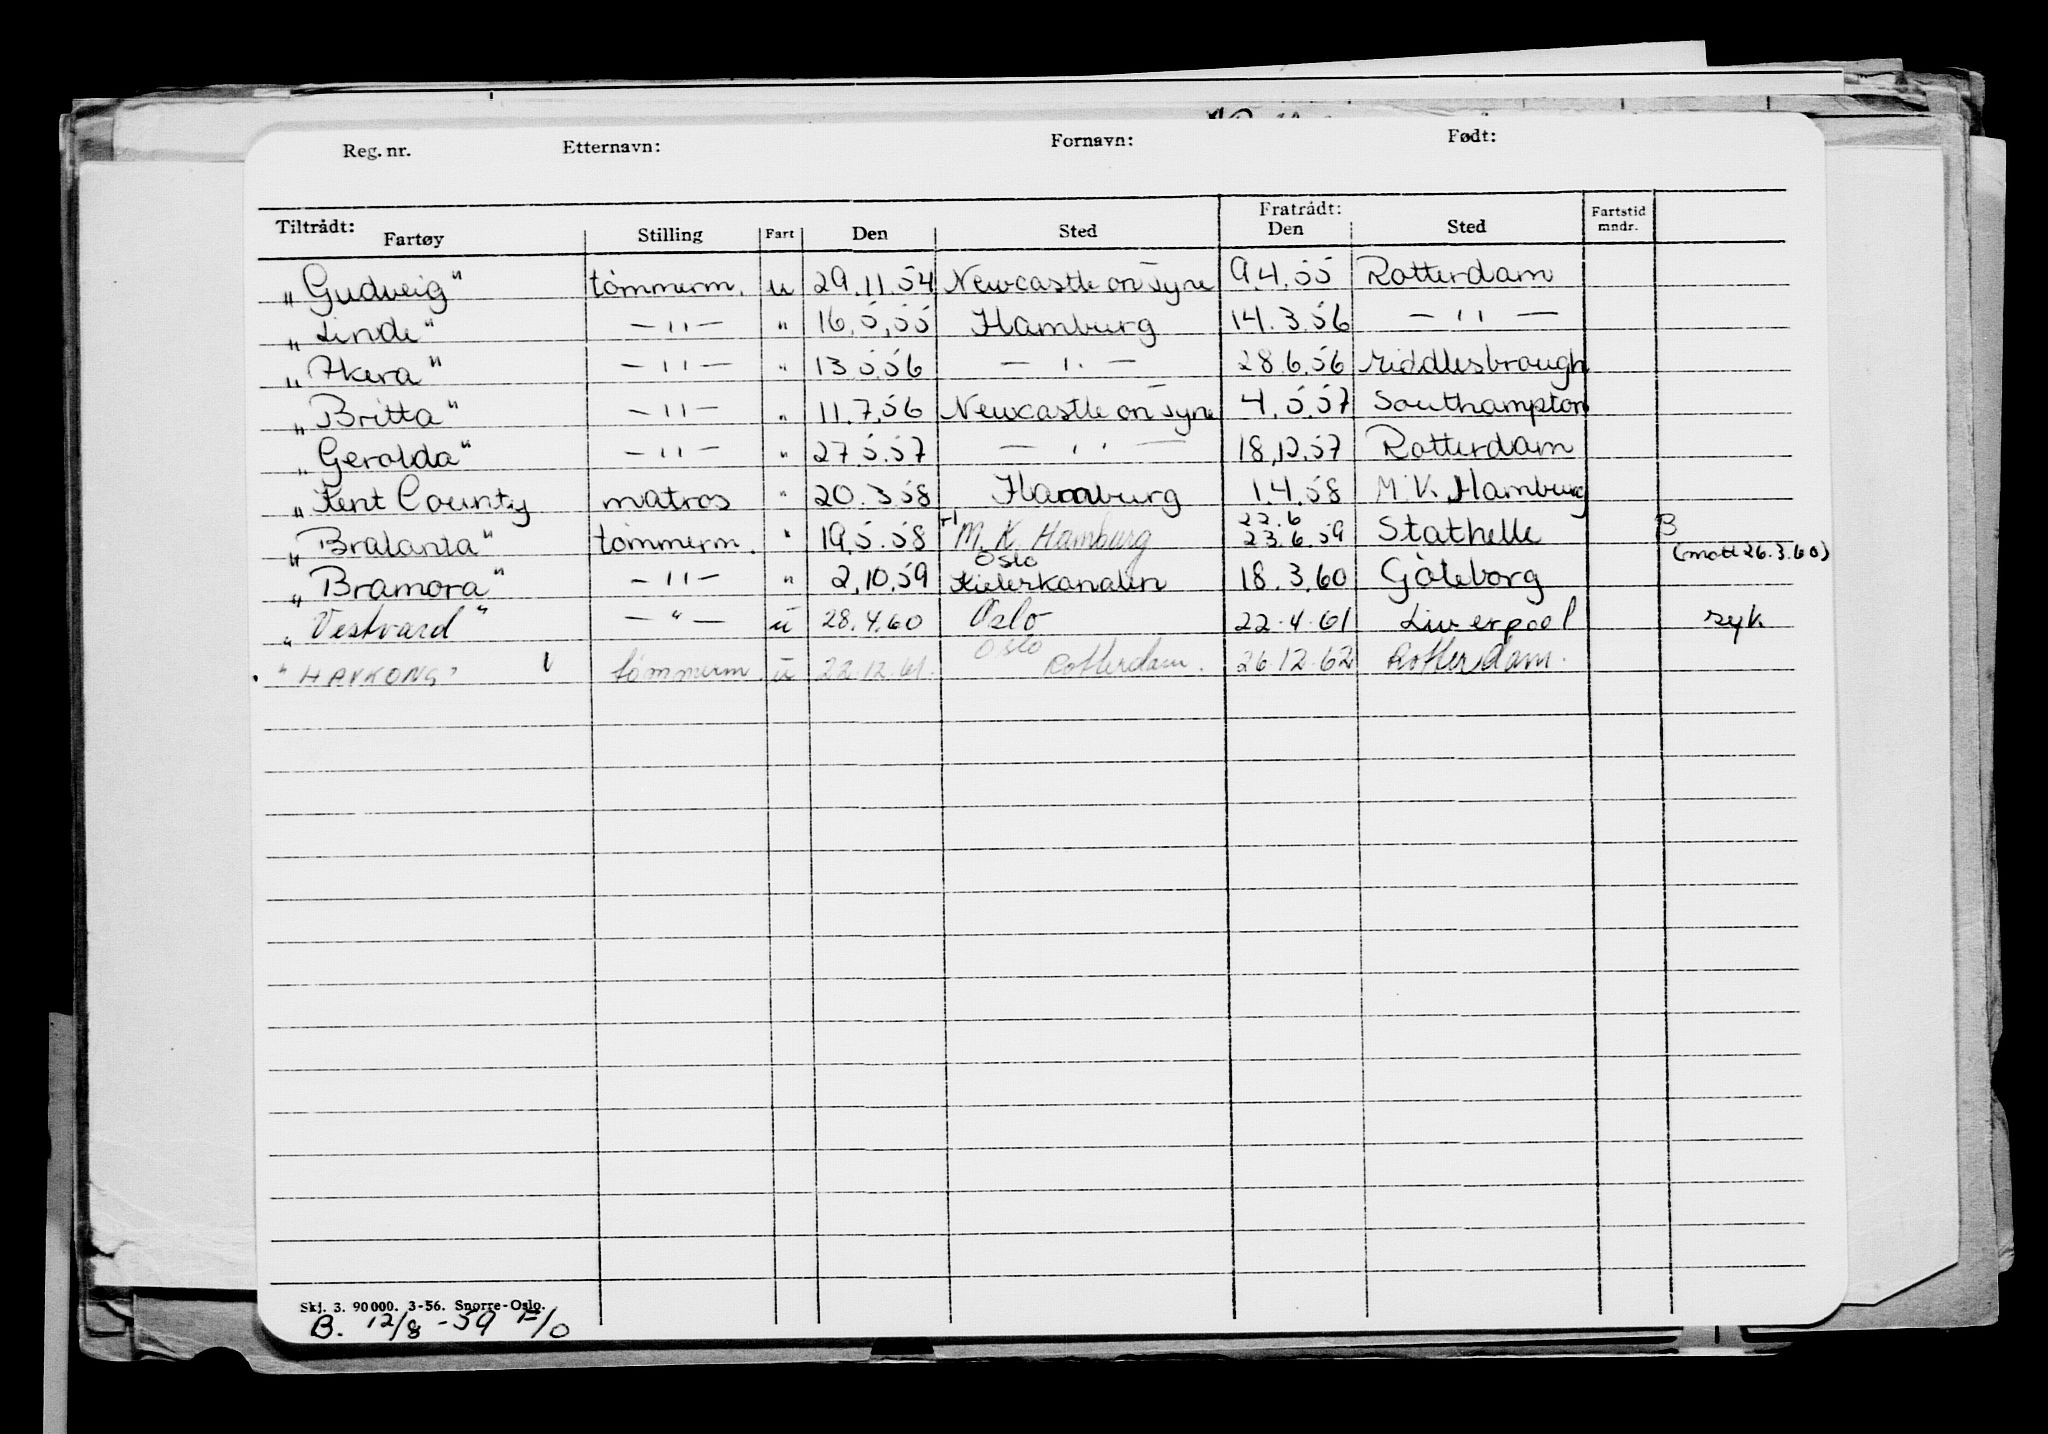 Reg. nr. Etternavn: Fornavn: Født:
Tiltrådt: Fratrådt: Fartstid mndr.
Fartøy Stilling Fart Den Sted Den Sted
"Gudveig" tömmerm. u 29.11.54 Newcastle on Tyne 9.4.55 Rotterdam
"Linde" — " — " 16.5.55 Hamburg 14.3.56 — " —
"Akera" — " — " 13.5.56 — " — 28.6.56 Middlesbrough
"Britta" — " — " 11.7.56 Newcastle on Tyne 4.5.57 Southampton
"Gerolda" — " — " 27.5.57 — " — 18.12.57 Rotterdam
"Kent County matros " 20.3.58 Hamburg 1.4.58 M.K. Hamburg
22.6
"Bralanta" tömmerm. " 19.5.58 M.K. Hamburg 23.6.59 Stathelle B
Oslo (mott 26.3.60)
"Bramora" — " — " 2.10.59 Kielerkanalen 18.3.60 Göteborg
"Vestvard" — " — u 28.4.60 Oslo 22.4.61 Liverpool syk
Oslo
"HAVKONG" tömmerm u 22.12.61. Rotterdam. 26.12.62 Rotterdam.
Skj. 3. 90000. 3-56. Snorre-Oslo.
B. 12/8 - 59 F/O